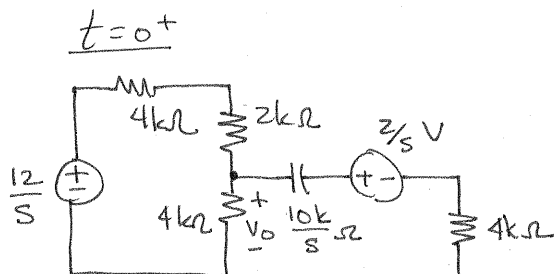 t=0⁺
4kΩ
2kΩ
2/s V
+ -
12/s
+ -
4kΩ
+ V₀ -
10k/s Ω
4kΩ